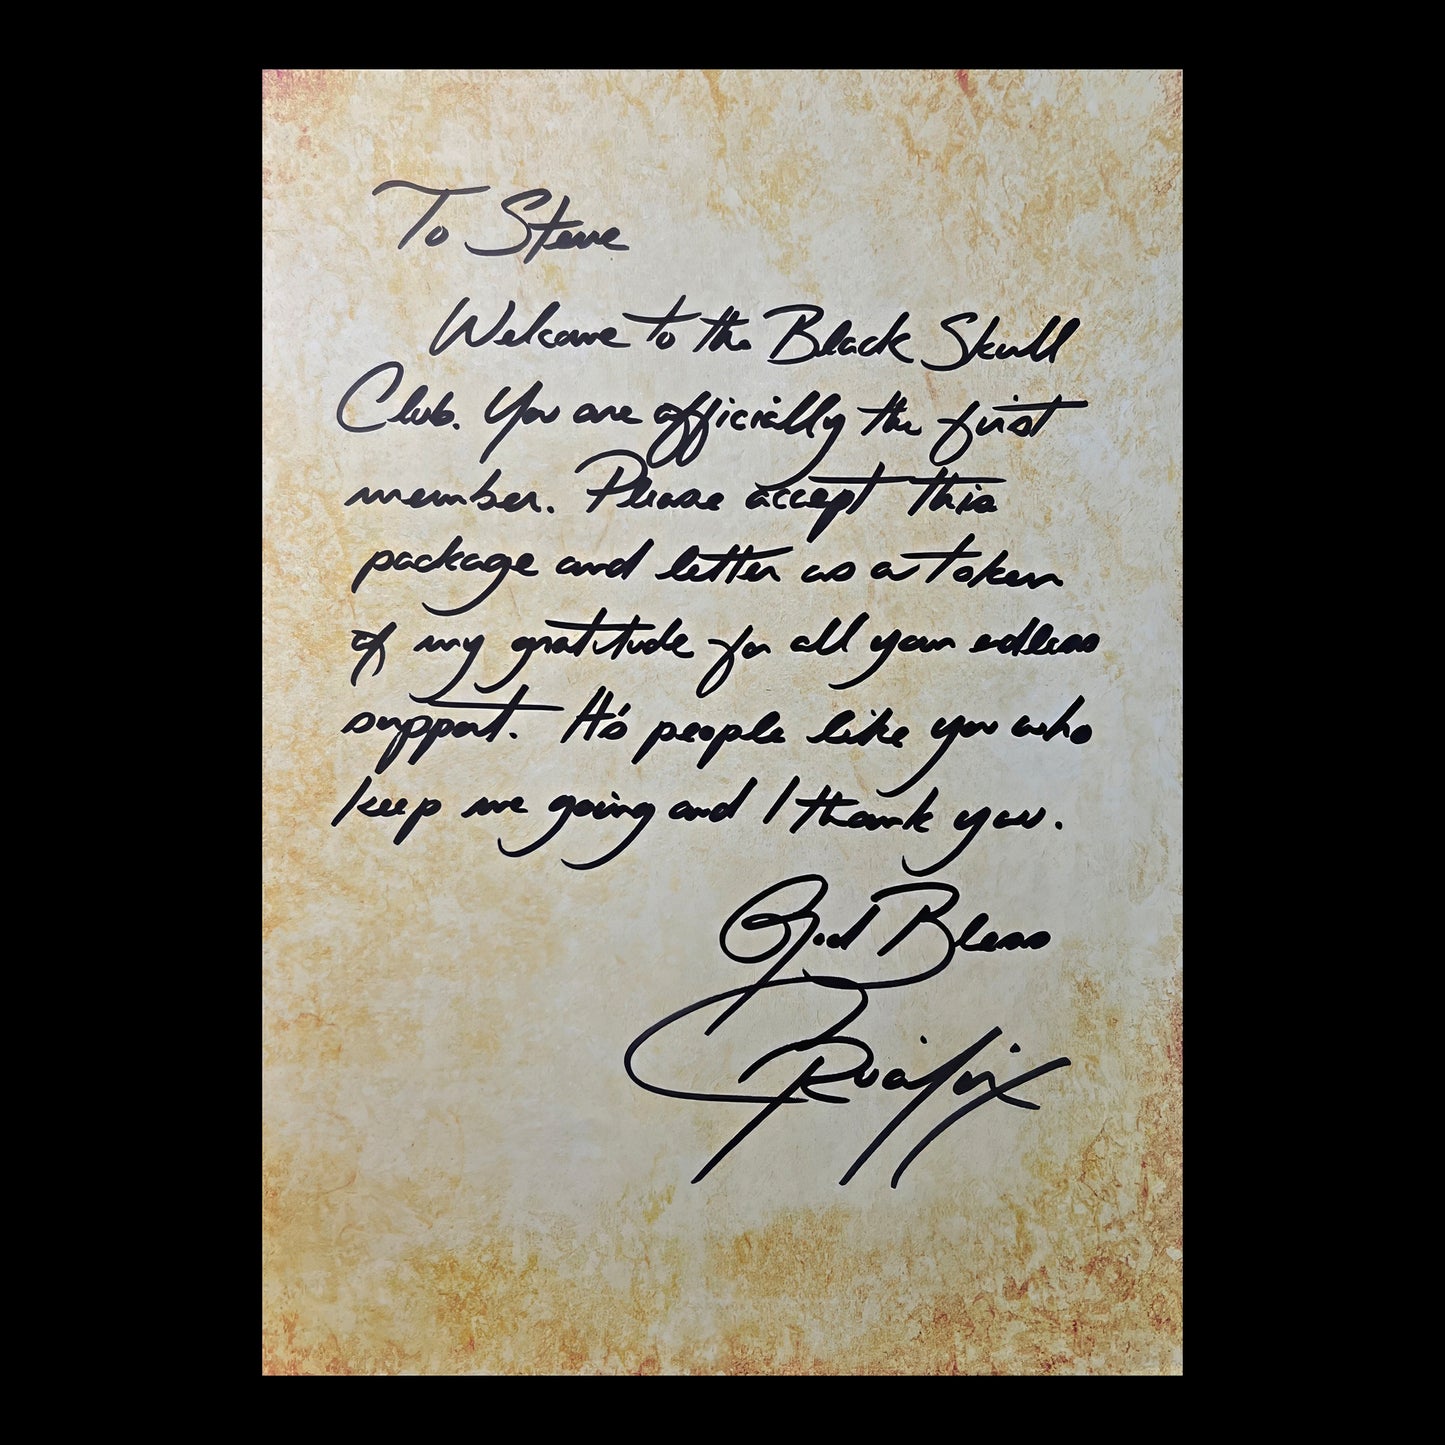 To Steve
Welcome to the Black Skull
Club. You are officially the first
member. Please accept this
package and letter as a token
of my gratitude for all your endless
support. It's people like you who
keep me going and I thank you.
God Bless